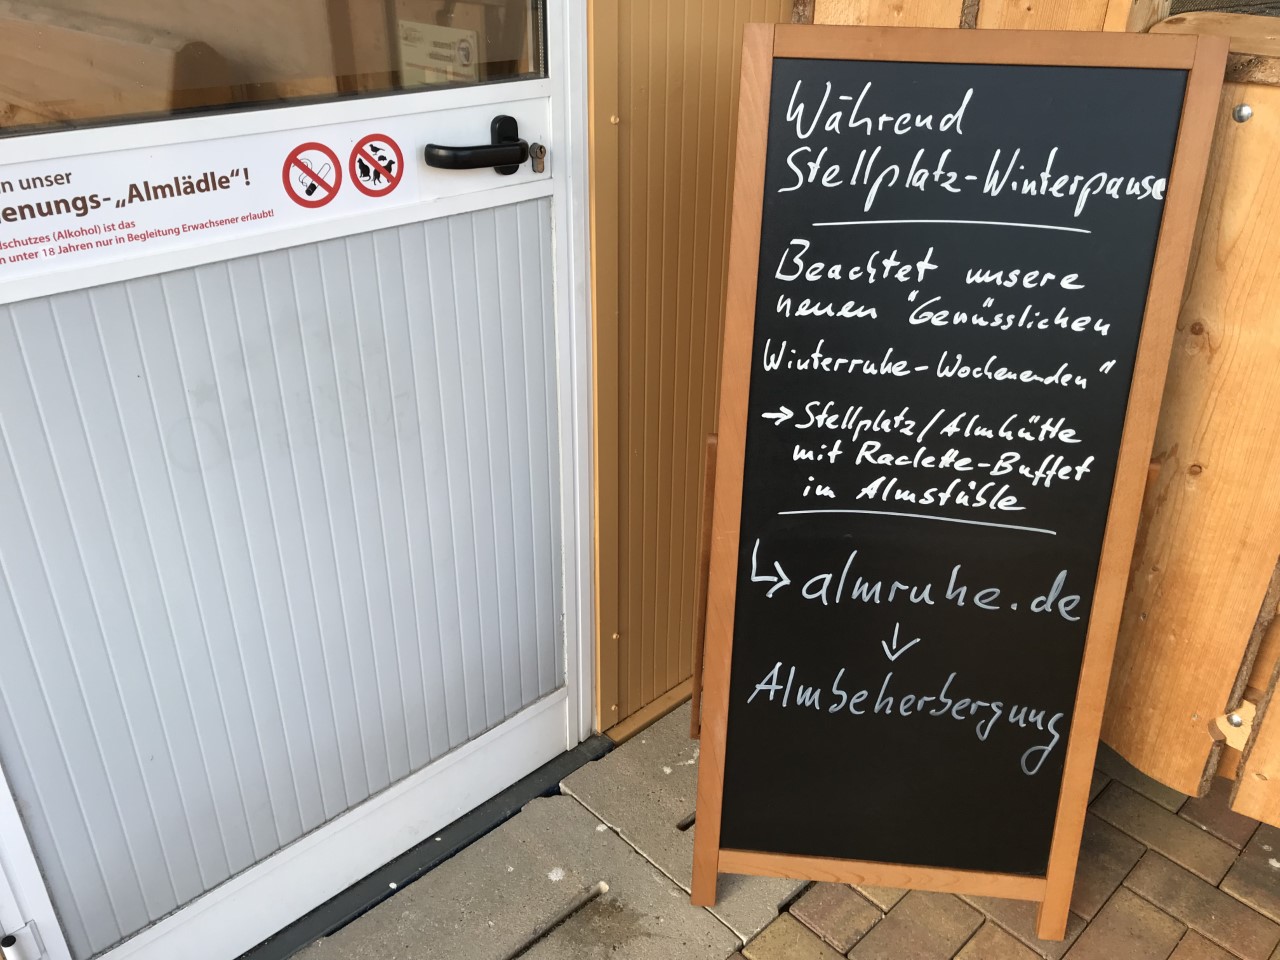 n unser
enungs-„Almlädle“!
dschutzes (Alkohol) ist das
n unter 18 Jahren nur in Begleitung Erwachsener erlaubt!
Während
Stellplatz-Winterpause
Beachtet unsere
neuen "Genüsslichen
Winterruhe-Wochenenden"
→ Stellplatz/Almhütte
mit Raclette-Buffet
im Almstüble
↳ almruhe.de
↓
Almbeherbergung